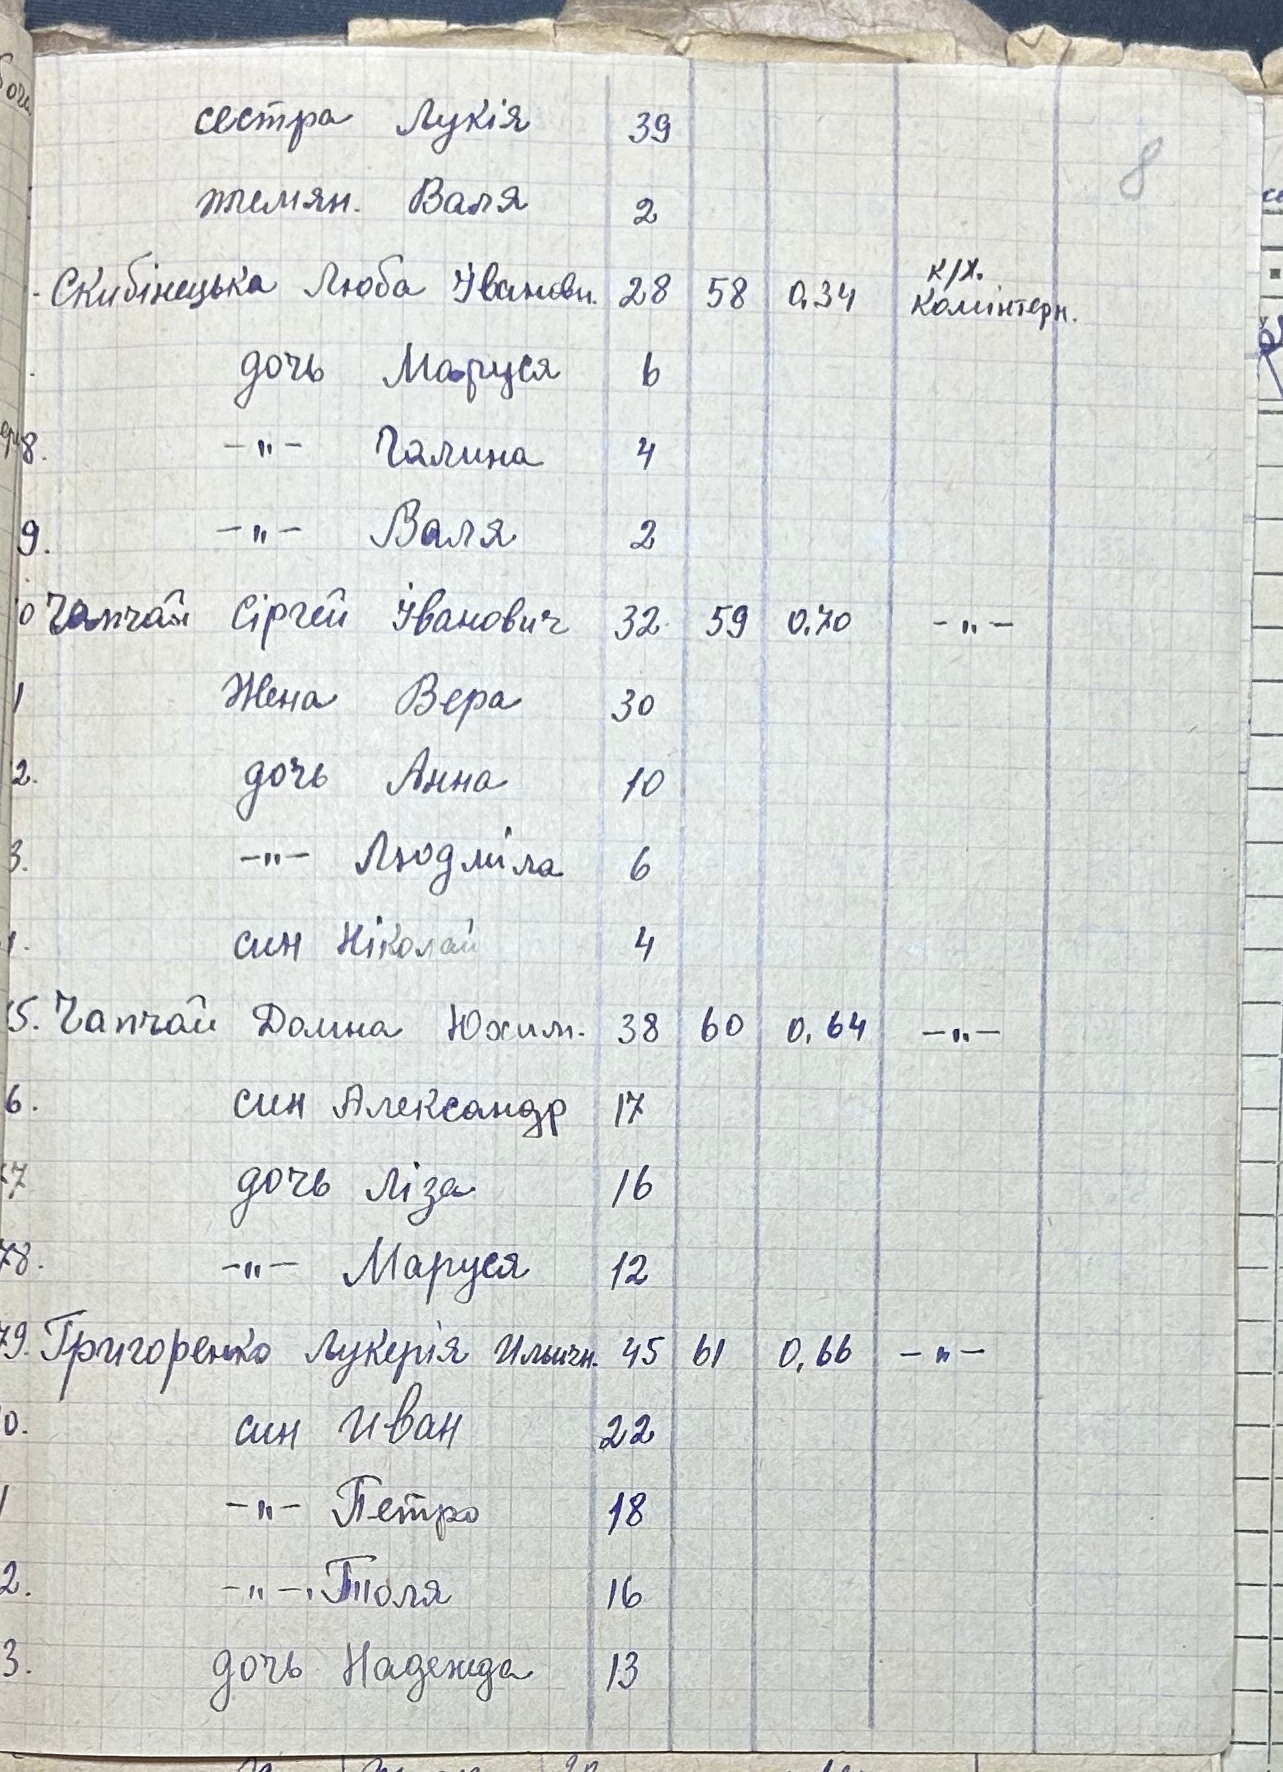 8
сестра Лукія 39
племян. Валя 2
Скибінецька Люба Івановн. 28 58 0,34 к/х. Комінтерн.
дочь Маруся 6
8. -"- Галина 4
9. -"- Валя 2
0 Чапчай Сіргей Іванович 32 59 0,70 -"-
1 Жена Вера 30
2. дочь Анна 10
3. -"- Людміла 6
син Ніколай 4
5. Чапчай Домна Юхим. 38 60 0,64 -"-
6. син Александр 17
7 дочь Ліза 16
78. -"- Маруся 12
79. Григоренко Лукерія Ильичн. 45 61 0,66 -"-
0. син Иван 22
1 -"- Петро 18
2. -"- Толя 16
3. дочь Надежда 13